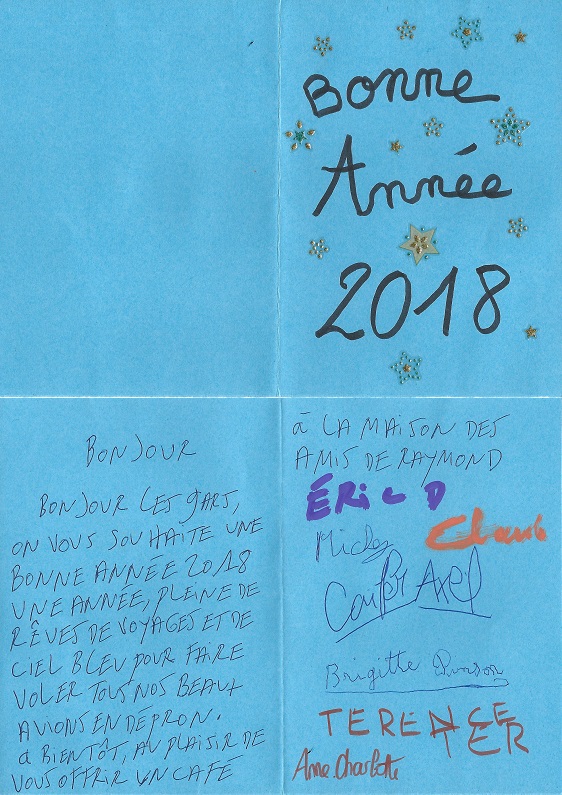 Bonne
Année
2018
BONJOUR
BONJOUR LES GARS,
ON VOUS SOUHAITE UNE
BONNE ANNEE 2018
UNE ANNÉE, PLEINE DE
RÊVES DE VOYAGES ET DE
CIEL BLEU POUR FAIRE
VOLER TOUS NOS BEAUX
AVIONS EN DÉPRON.
à BIENTÔT, AU PLAISIR DE
VOUS OFFRIR UN CAFÉ
à LA MAISON DES
AMIS DE RAYMOND
ÉRIC D
Axel
Brigitte
TERENCE
Anne.Charlotte